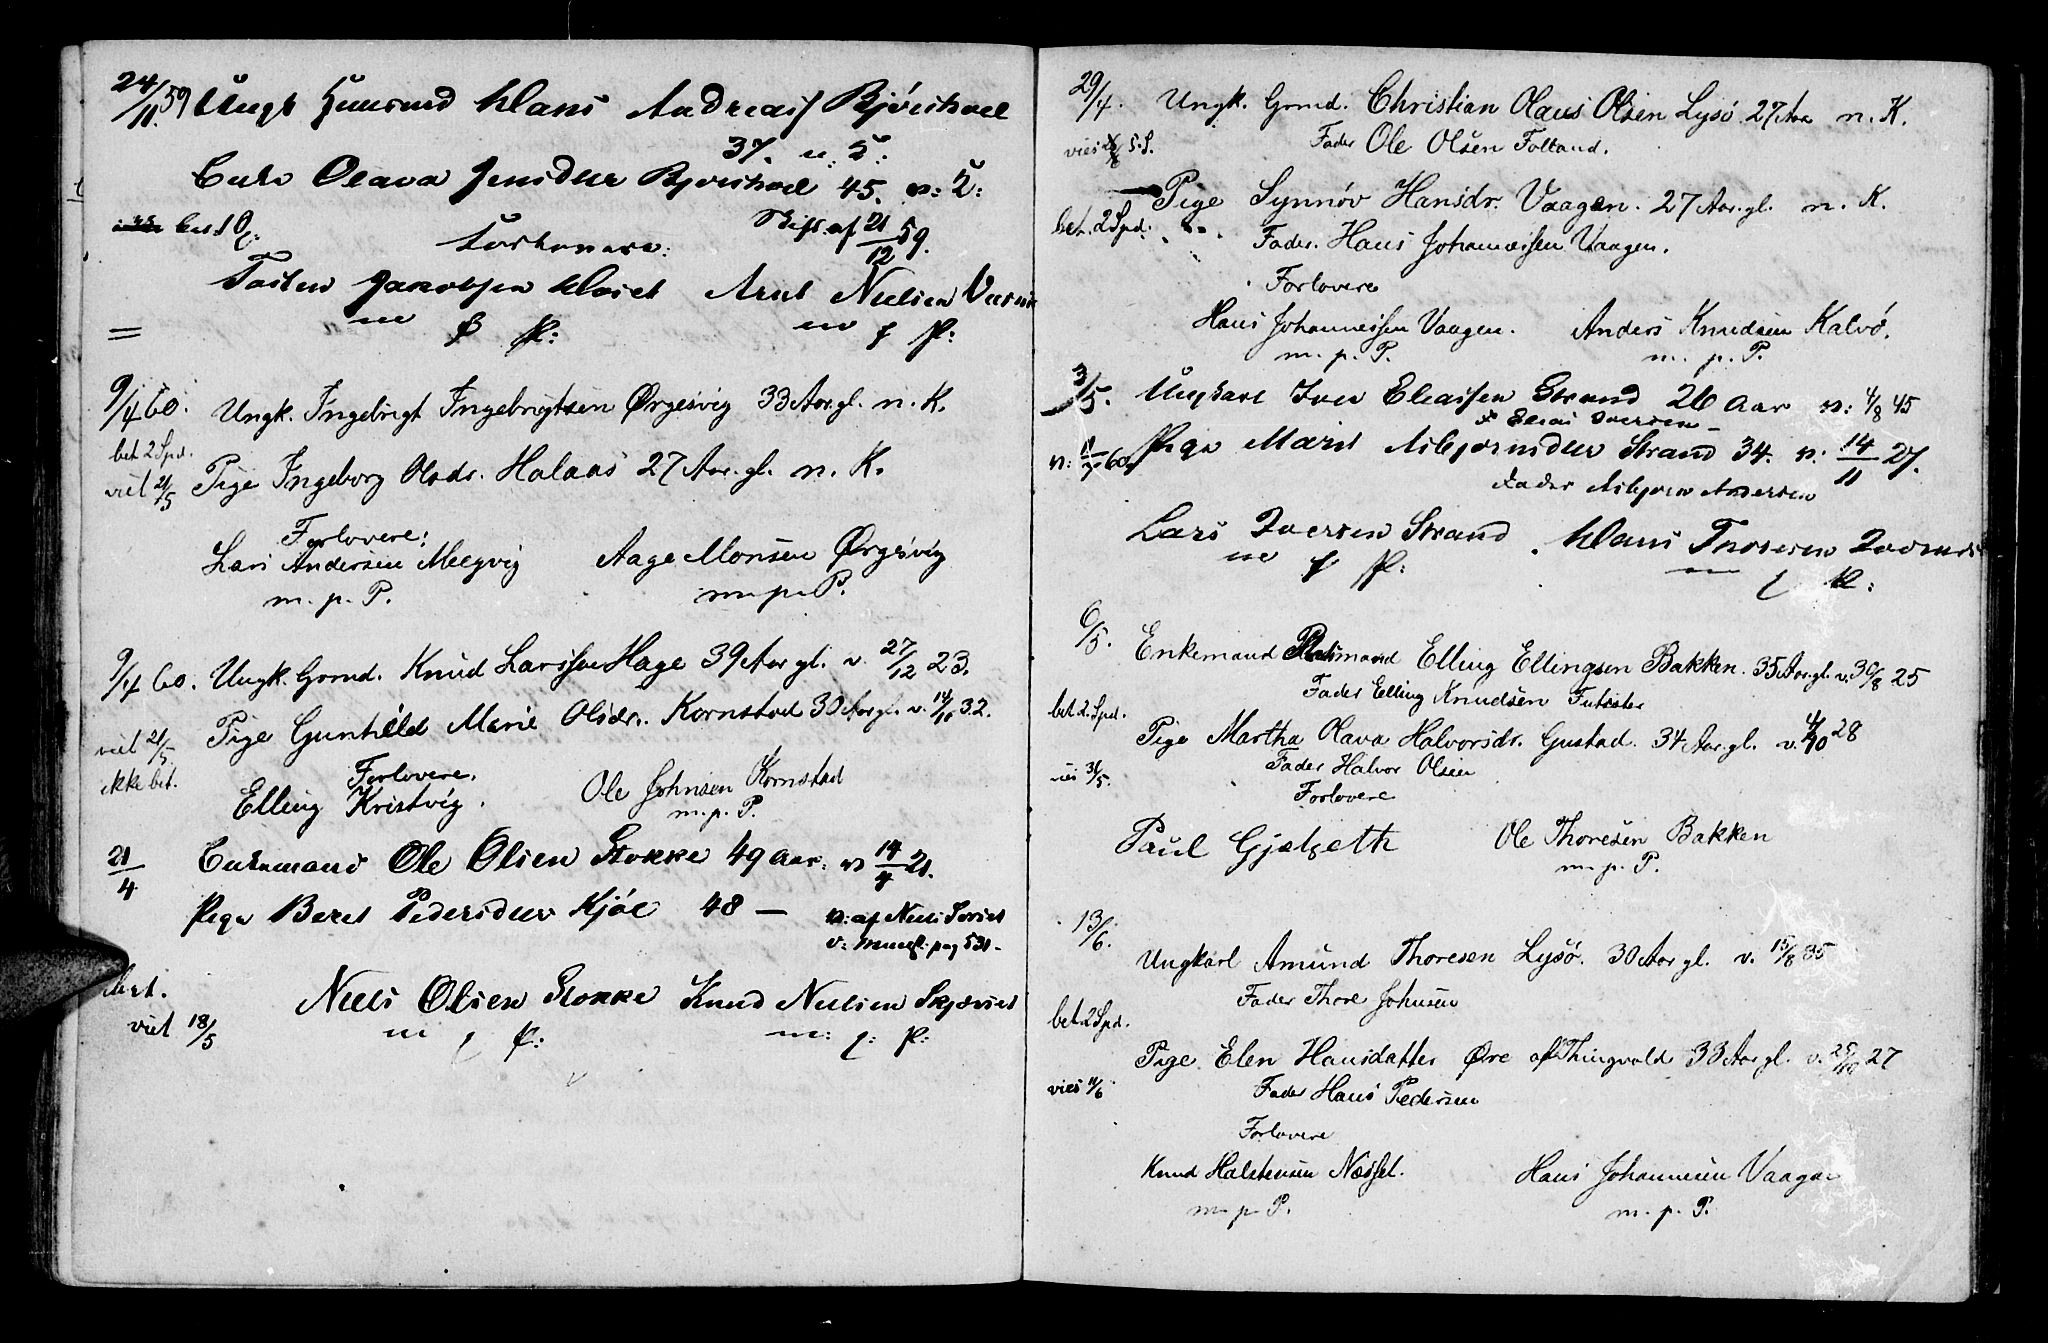 24/11 59 Ungk Huusmd Hans Andreas Bjørshoel
37. n: S:
Enke Olava Jensdtr Bjørshoel 45. n: S:
bet. Skift. af 21/12 59.
Forlovere:
Torsten Jacobsen Arnt Nielsen
m p P: m p P:
9/4 60. Ungk. Ingebrigt Ingebrigtsen Ørgesvig 33 Aar gl. n. K.
bet 2 Spd.
viet 21/5 Pige Ingeborg Olsdr. Halaas 27 Aar. gl. n. K.
Forlovere:
Lars Andersen Meegvig Aage Monsen Ørgesvig
m. p. P. m. p. P.
9/4 60. Ungk. Grmd. Knud Larssen Hage 39 Aar gl. v. 27/12 23.
Pige Gunhild Marie Olsdr. Kornstad 30 Aar gl. v. 14/10 32.
viet 21/5.
ikke bet. Forlovere.
Elling Kristvig. Ole Johnsen Kornstad
m. p. P.
21/4 Enkemand Ole Olsen Stokke 49 Aar. v 14/4 21.
Pige Beret Pedersdtr Kjøl 48 — n: af Niels
v: pag 531-
bet.
Niels Olsen Stokke Knud Nielsen
viet 18/5 m p P: m: p: P:
29/4. Ungk. Grmd. Christian Olaus Olsen Lysø. 27 Aar n. K.
Fader Ole Olsen Folland.
vies
Pige Synnøv Hansdr. Vaagen. 27 Aar. gl. n. K.
bet. 2 Spd. Fader. Hans Johannessen Vaagen.
Forlovere
Hans Johannessen Vaagen. Anders Knudsen Kalvø.
m. p. P. m. p. P.
3/5. Ungkarl Iver Eliassen Strand 26 Aar n: 4/8 45
F Elias Iversen
Pige Marit Asbjørnsdtr Strand 34. n. 14/11 27.
Fader Asbjørn Andersen
Lars Iversen Strand. Hans Thoresen
m p P: m p P:
6/5. Enkemand Elling Ellingsen Bakken. 35 Aar. gl. v. 30/8 25
Fader Elling Knudsen
bet 2. Spd.
Pige Martha Olava Halvorsdr. Gustad. 34 Aar. gl. v. 4/10 28
Fader Halvor Olsen
vies 31/5.
Forlovere
Paul Gjelseth Ole Thoresen Bakken
m. p. P.
13/6.
Ungkarl Amund Thoresen Lysø. 30 Aar gl. v. 15/8 35
Fader Thore Johnsen
bet. 2 Spd.
Pige Elen Hansdatter Øre af Thingvold 33 Aar gl. v. 25/10 27
vies 11/6 Fader Hans Pedersen
Forlovere
Knud Halstensen Næsset. Hans Johannesen Vaagen
m. p. P. m. p. P.